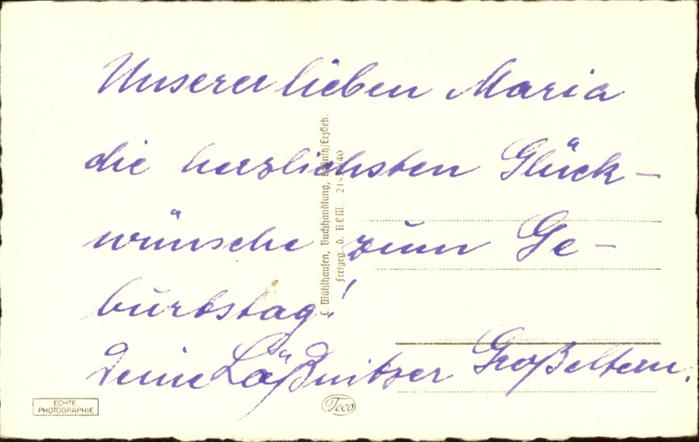 Unserer lieben Maria
die herzlichsten Glück-
wünsche zum Ge-
burtstag!
Deine Lößnitzer Großeltern.
Mühlhausen, Buchhandlung,
Freigeg. d. REM.
ECHTE
PHOTOGRAPHIE
Teco